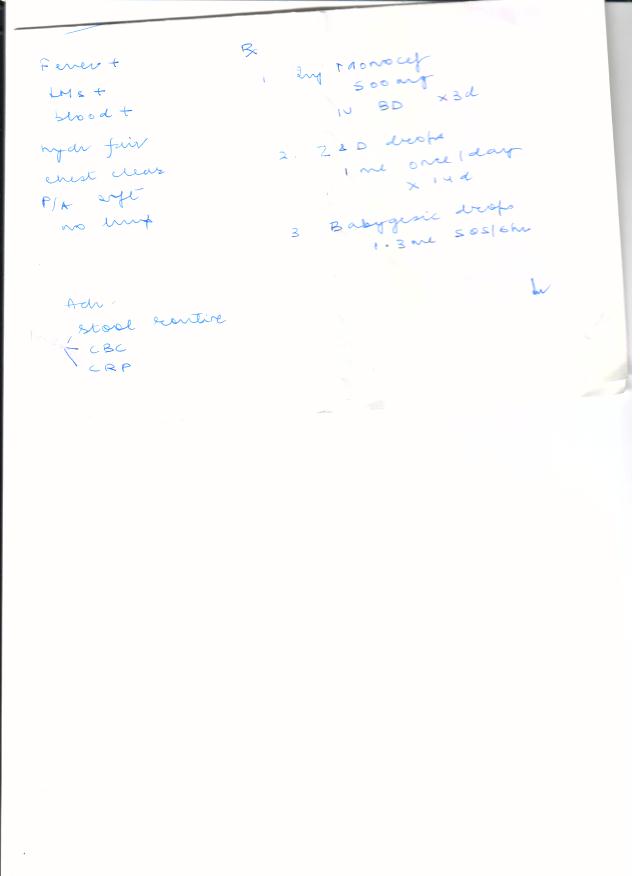 Fever +
LMS +
blood +
hydr fair
chest clear
P/A soft
no lump
Adv.
stool routine
CBC
CRP
Rx
1. Inj Monocef
500 mg
IV BD x3d
2. Z&D drops
1 ml once/day
x 14d
3 Babygesic drops
1.3 ml SOS/6hr